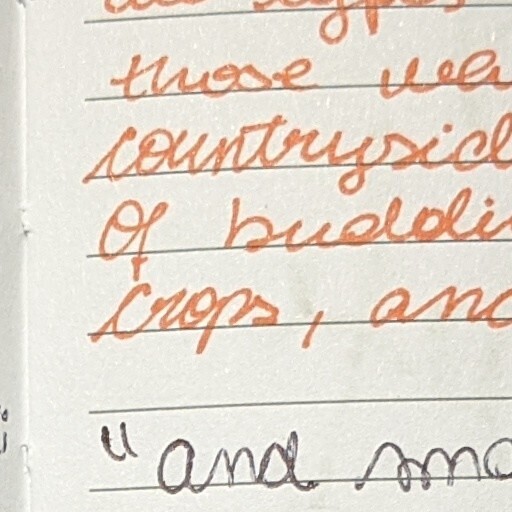 those
countrysid
of buddi
crops, and
"and smo